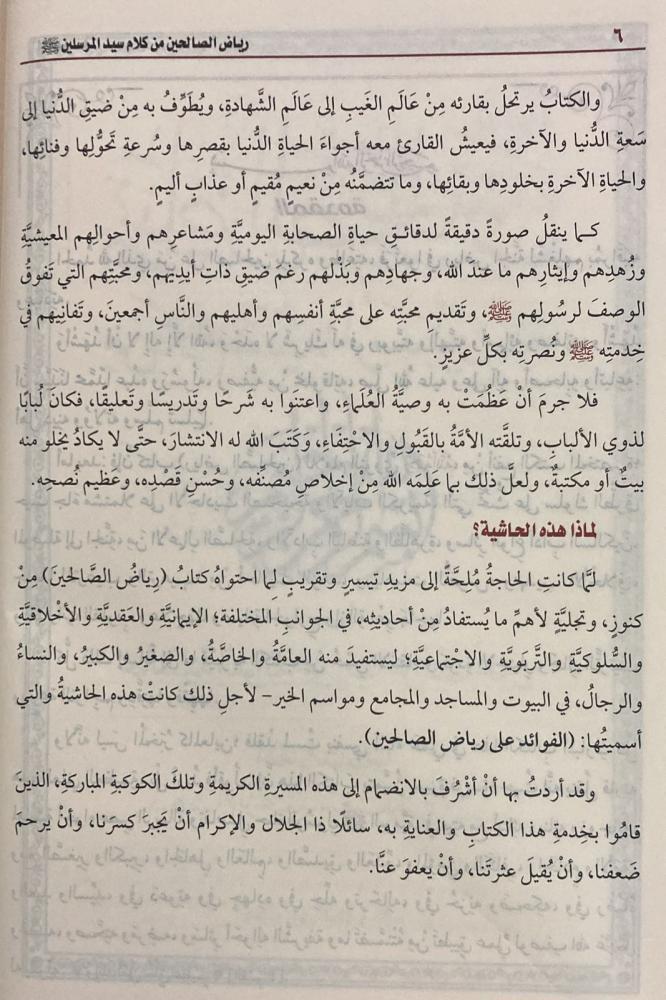 ٦
رياض الصالحين من كلام سيد المرسلين ﷺ
والكتابُ يرتحلُ بقارئه مِنْ عَالَمِ الغَيبِ إلى عَالَمِ الشَّهادةِ، ويُطَوِّفُ به مِنْ ضيقِ الدُّنيا إلى
سَعةِ الدُّنيا والآخرةِ، فيعيشُ القارئ معه أجواءَ الحياةِ الدُّنيا بقصرِها وسُرعةِ تَحوُّلِها وفنائِها،
والحياةِ الآخرةِ بخلودِها وبقائِها، وما تتضمَّنُه مِنْ نعيمٍ مُقيمٍ أو عذابٍ أليمٍ.
كما ينقلُ صورةً دقيقةً لدقائقِ حياةِ الصحابةِ اليوميَّةِ ومَشاعرِهم وأحوالِهم المعيشيَّةِ
وزُهدِهم وإيثارِهم ما عندَ الله، وجهادِهم وبَذْلهم رغمَ ضيقِ ذاتِ أيديهم، ومحبَّتِهم التي تَفوقُ
الوصفَ لرسُولِهم ﷺ، وتَقديمِ محبَّتِه على محبَّةِ أنفسِهم وأهليهم والنَّاسِ أجمعينَ، وتَفانِيهم في
خِدمتِه ﷺ ونُصرتِه بكلِّ عزيزٍ.
فلا جرمَ أنْ عَظُمَتْ به وصيَّةُ العُلَماءِ، واعتنَوا به شَرحًا وتَدريسًا وتَعليقًا، فكانَ لُبابًا
لذوي الألبابِ، وتلقَّته الأمَّةُ بالقَبُولِ والاحْتِفَاءِ، وَكَتَبَ الله له الانتشارَ، حتَّى لا يكادُ يخلو منه
بيتٌ أو مكتبةٌ، ولعلَّ ذلك بما عَلِمَه الله مِنْ إخلاصِ مُصنِّفِه، وحُسْنِ قَصْدِه، وعَظيم نُصحِه.
لماذا هذه الحاشية؟
لمَّا كانتِ الحاجةُ مُلِحَّةً إلى مزيدِ تيسيرٍ وتقريبٍ لِما احتواهُ كتابُ (رِياضُ الصَّالحينَ) مِنْ
كنوزٍ، وتجليَّةٍ لأهمِّ ما يُستفادُ مِنْ أحاديثِه، في الجوانبِ المختلفة؛ الإيمانيَّةِ والعَقديَّةِ والأخْلاقيَّةِ
والسُّلوكيَّةِ والتَّربَويَّةِ والاجْتماعيَّةِ؛ ليستفيدَ منه العامَّةُ والخاصَّةُ، والصغيرُ والكبيرُ، والنساءُ
والرجالُ، في البيوت والمساجد والمجامع ومواسم الخير- لأجلِ ذلك كانتْ هذه الحاشيةُ والتي
أسميتُها: (الفوائد على رياض الصالحين).
وقد أردتُ بها أنْ أشْرُفَ بالانضمام إلى هذه المسيرةِ الكريمةِ وتلكَ الكوكبةِ المباركةِ، الذينَ
قامُوا بخِدمةِ هذا الكتابِ والعنايةِ به، سائلًا ذا الجلال والإكرام أنْ يَجبرَ كسرَنا، وأنْ يرحمَ
ضَعفنا، وأنْ يُقيلَ عثرتَنا، وأنْ يعفوَ عنَّا.